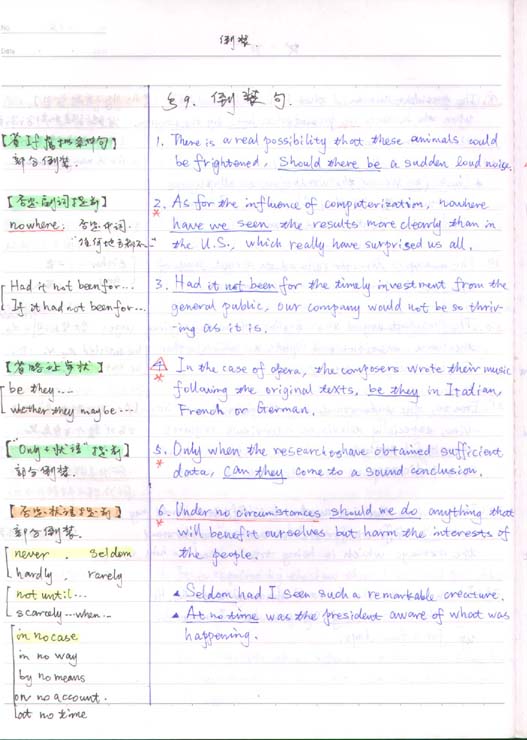 No
Date
倒装.
§9. 倒装句.
【省If虚拟条件句】
部分倒装.
1. There is a real possibility that these animals could
be frightened, should there be a sudden loud noise.
【否定副词提前】
nowhere: 否定词
"任何地方都不…"
2. As for the influence of computerization, nowhere
have we seen the results more clearly than in
the U.S., which really have surprised us all.
Had it not been for...
If it had not been for...
3. Had it not been for the timely investment from the
general public, our company would not be so thriv-
-ing as it is.
【省略让步状】
be they....
whether they may be...
4. In the case of opera, the composers wrote their music
following the original texts, be they in Italian,
French or German.
【"Only+状语"提前】
部分倒装.
5. Only when the researchers have obtained sufficient
data, can they come to a sound conclusion.
【否定状语提前】
部分倒装.
never. seldom
hardly. rarely
not until...
scarcely...when...
in no case
in no way
by no means
on no account.
at no time
6. Under no circumstances should we do anything that
will benefit ourselves but harm the interests of
the people.
▲ Seldom had I seen such a remarkable creature.
▲ At no time was the president aware of what was
happening.